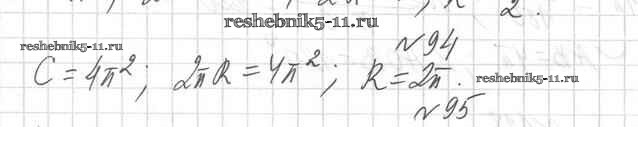 2.
reshebnik5-11.ru
№94
reshebnik5-11.ru
C = 4π²; 2πR = 4π²; R = 2π.
reshebnik5-11.ru
№95